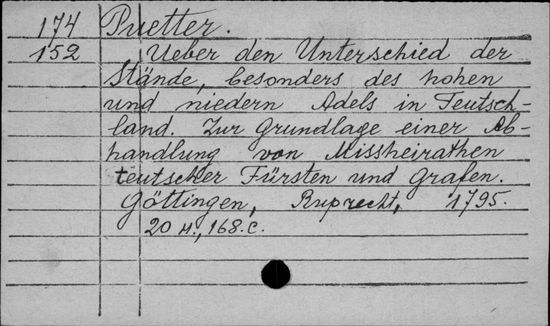 174 Puetter.
152 Ueber den Unterschied der
Stände, besonders des hohen
und niedern Adels in Teutsch-
land. Zur Grundlage einer Ab-
handlung von Missheirathen
teutscher Fürsten und Grafen.
Göttingen, Ruprecht, 1795.
20 н., 168 с.